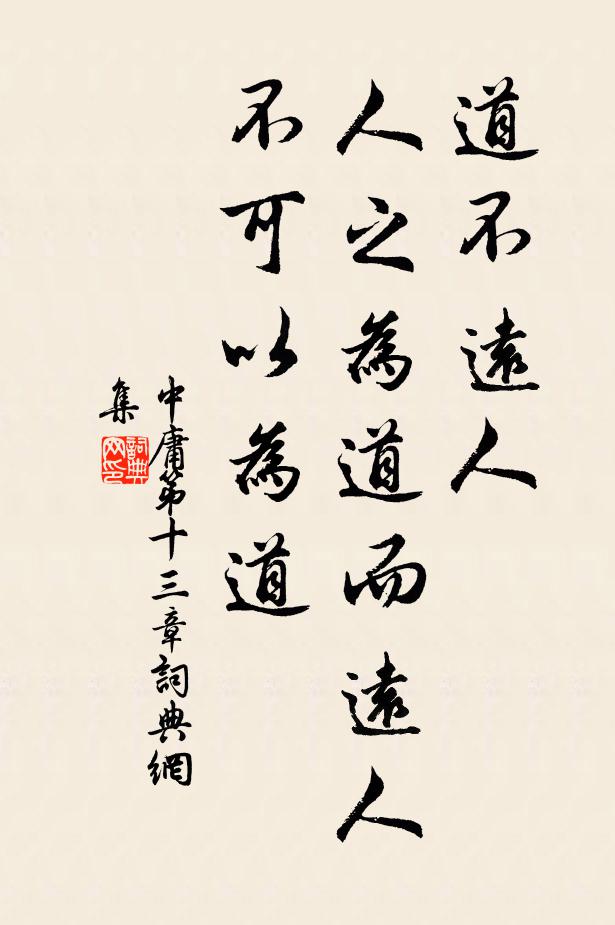 道不遠人
人之為道而遠人
不可以為道
中庸第十三章詞典網
集
詞典
网印